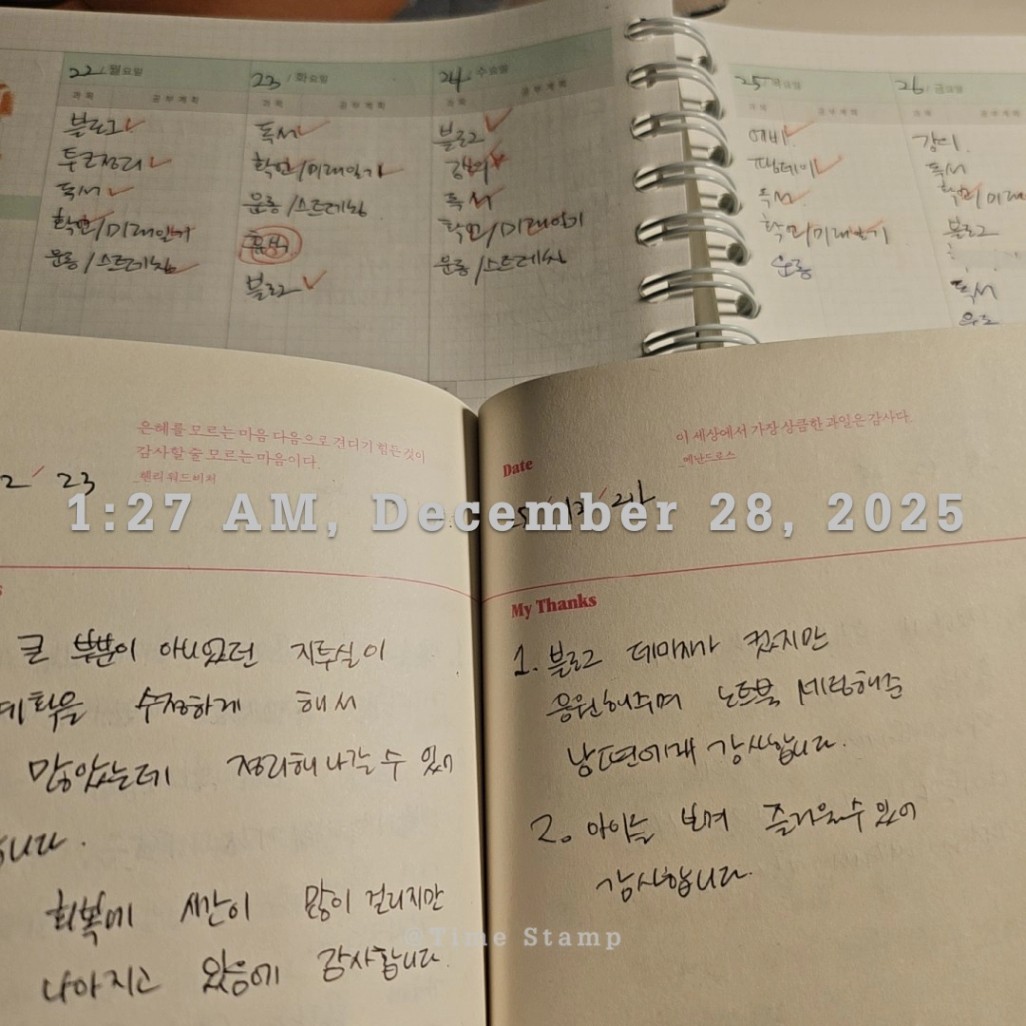 22 / 월요일
과목 공부계획
블로그
독서
확언/미래일기
운동/스트레칭
23 / 화요일
과목 공부계획
독서
확언/미래일기
운동/스트레칭
휴식
블로그
24 / 수요일
과목 공부계획
블로그
강의
독서
확언/미래일기
운동/스트레칭
25 / 목요일
과목 공부계획
독서
확언/미래일기
운동
26 / 금요일
과목 공부계획
강의
독서
확언/미래
블로그
독서
은혜를 모르는 마음 다음으로 견디기 힘든 것이
감사할 줄 모르는 마음이다.
_헨리 워드 비처
2 / 23
큰 부분이 아니었던 지루실이
계획을 수정하게 해서
많았는데 정리해 나갈 수 있어
습니다.
회복에 시간이 많이 걸리지만
나아지고 있음에 감사합니다.
이 세상에서 가장 상큼한 과일은 감사다.
_메난드로스
Date
My Thanks
1. 블로그 데미지가 컸지만
응원해주며 노트북 세팅해준
남편에게 감사합니다.
2. 아이들 보며 즐거울 수 있어
감사합니다.
1:27 AM, December 28, 2025
@Time Stamp